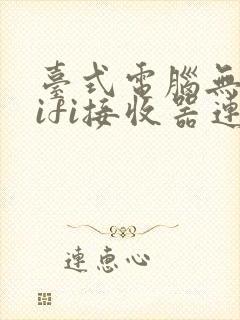 臺式電腦無
ifi接收器連
連惠心